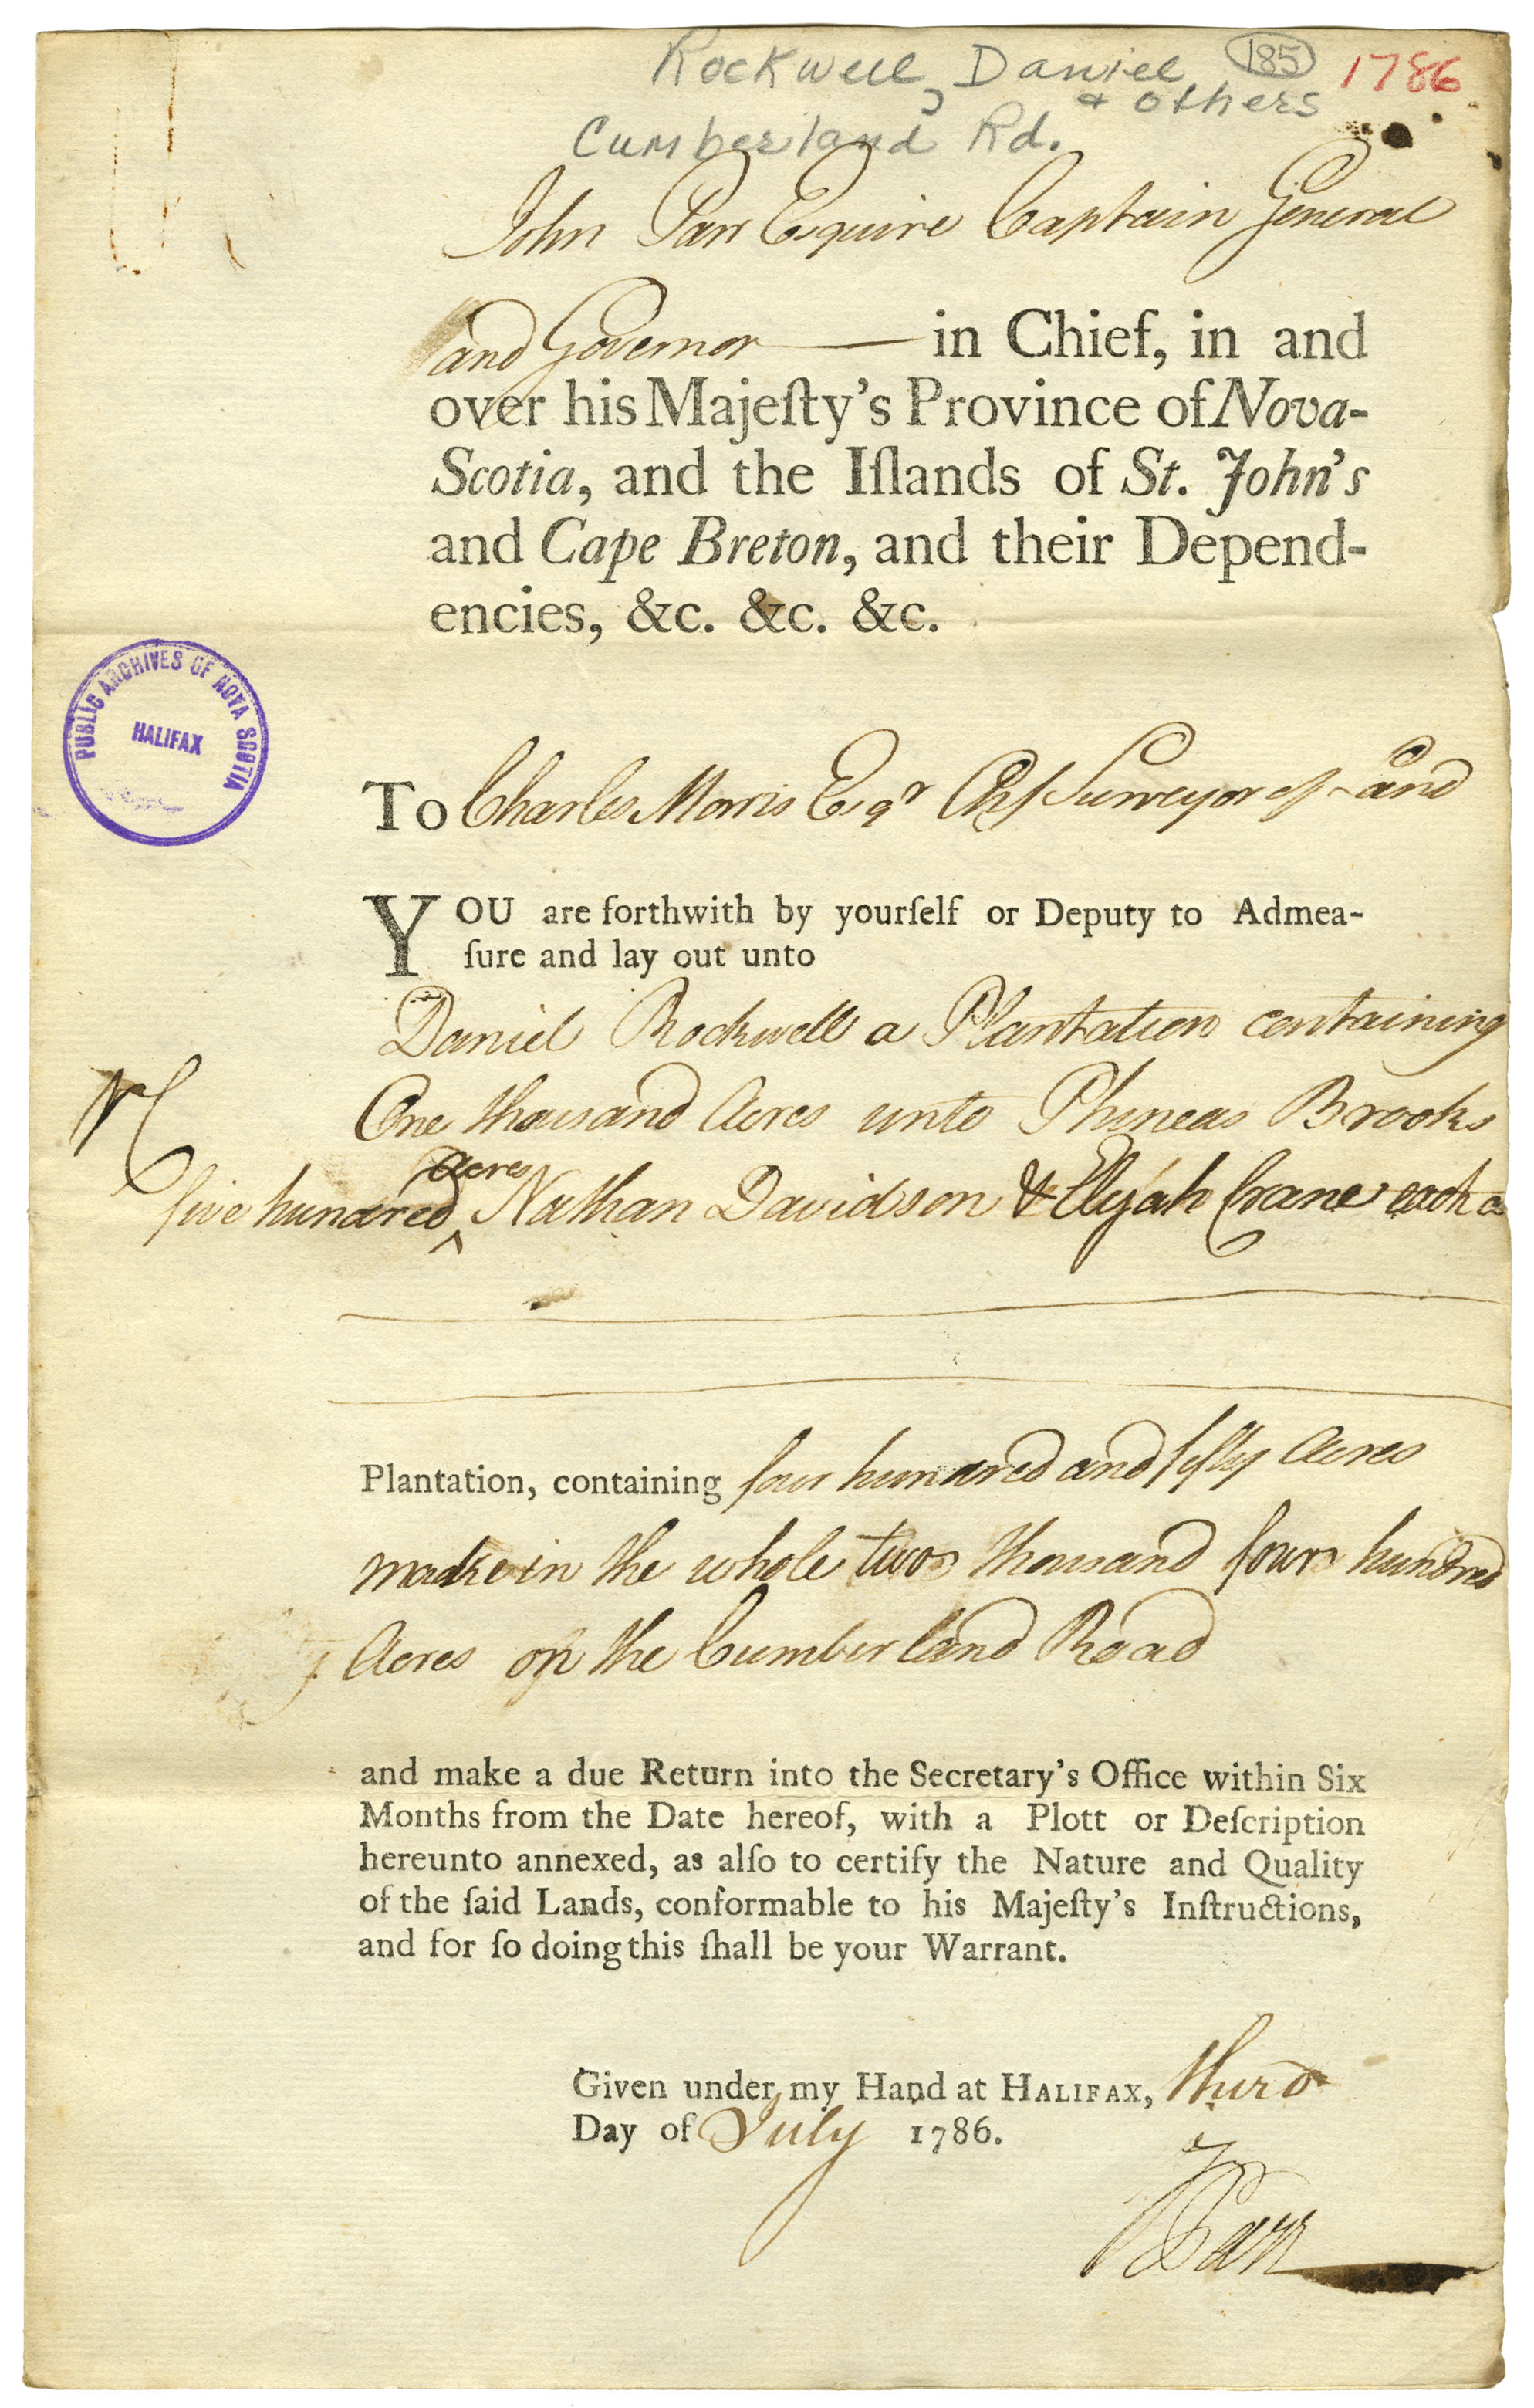 Rockwell, Daniel 185 1786
& others
Cumberland Rd.
John Parr Esquire Captain General
and Governor — in Chief, in and
over his Majeſty's Province of Nova-
Scotia, and the Iſlands of St. John's
and Cape Breton, and their Depend-
encies, &c. &c. &c.
PUBLIC ARCHIVES OF NOVA SCOTIA
HALIFAX
To Charles Morris Esqr Chf Surveyor of Land
YOU are forthwith by yourſelf or Deputy to Admea-
ſure and lay out unto
Daniel Rockwell a Plantation containing
One thousand Acres unto Phineas Brooks
five hundred acres Nathan Davidson & Elijah Crane each a
Plantation, containing four hundred and fifty Acres
in the whole two thousand four hundred
Acres on the Cumberland Road
and make a due Return into the Secretary's Office within Six
Months from the Date hereof, with a Plott or Deſcription
hereunto annexed, as alſo to certify the Nature and Quality
of the ſaid Lands, conformable to his Majeſty's Inſtructions,
and for ſo doing this ſhall be your Warrant.
Given under my Hand at HALIFAX, third
Day of July 1786.
J Parr